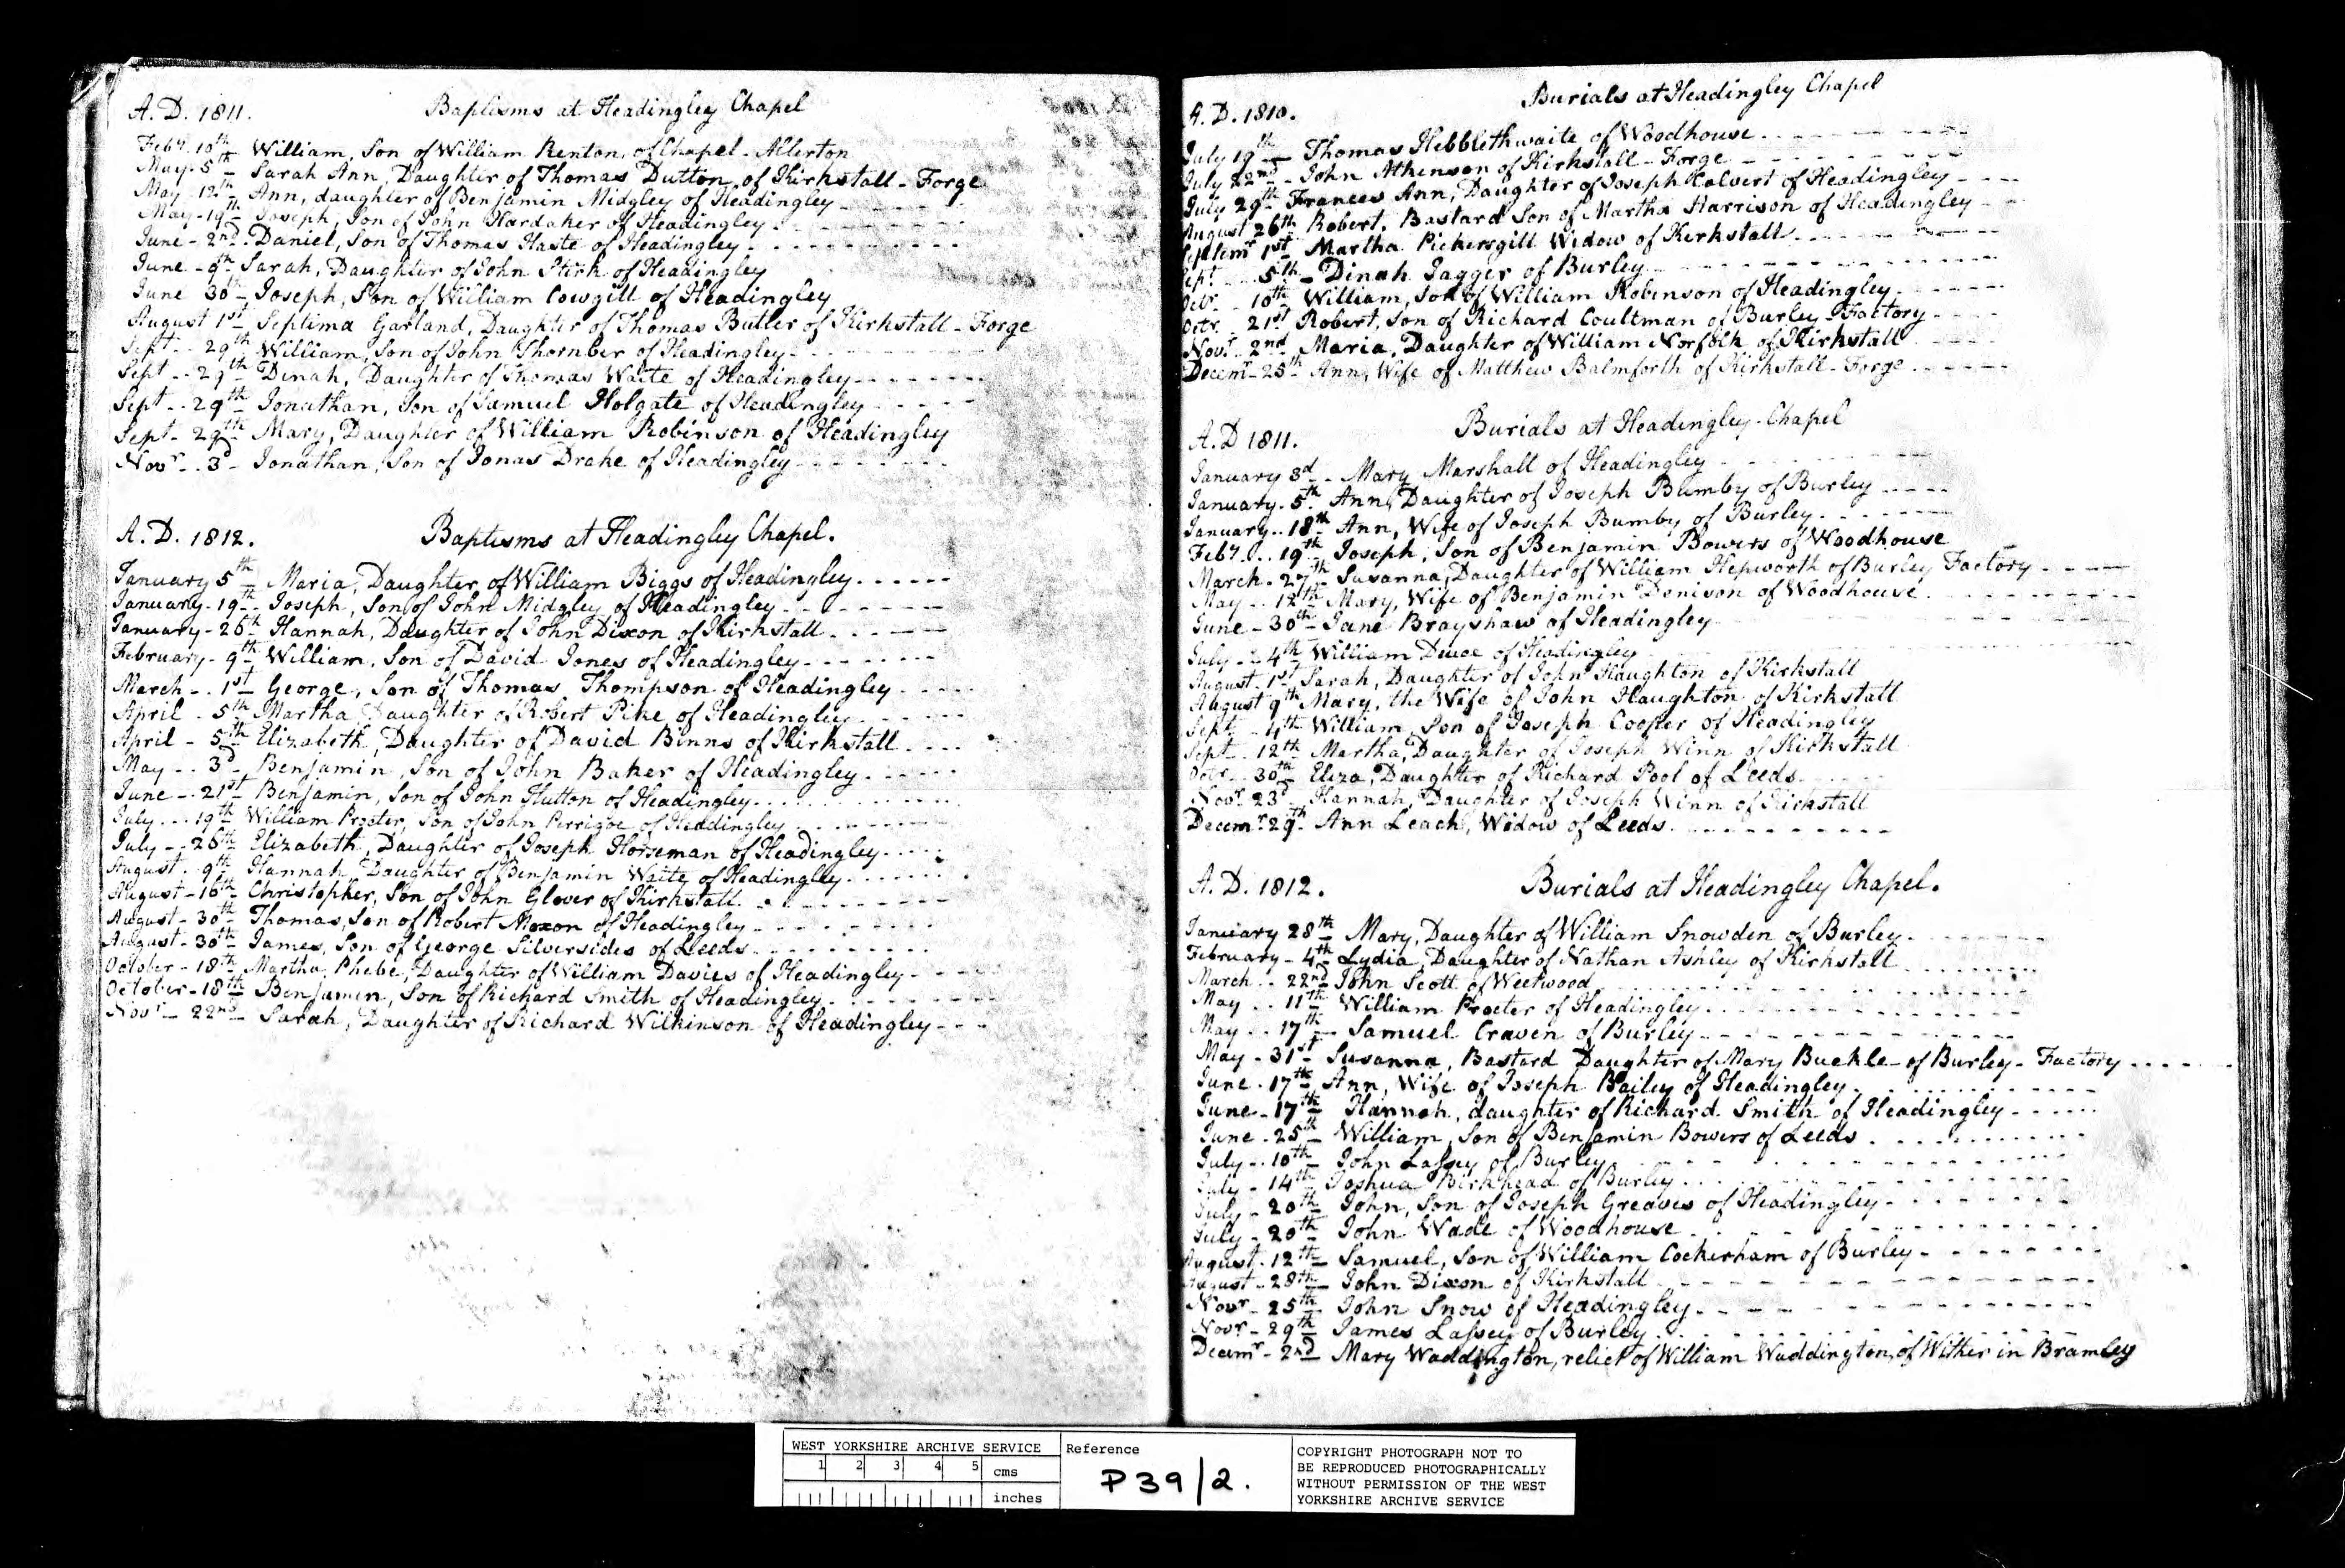 A. D. 1811. Baptisms at Headingley Chapel
Feby. 10th William, Son of William Renton, of Chapel-Allerton
May. 5th Sarah Ann, Daughter of Thomas Dutton of Kirkstall-Forge
May 12th Ann, daughter of Benjamin Midgley of Headingley
May 19th Joseph, Son of John Hardaker of Headingley
June - 2nd. Daniel, Son of Thomas Haste of Headingley
June - 9th Sarah, Daughter of John Stirk of Headingley
June 30th Joseph, Son of William Cowgill of Headingley
August 1st Septima Garland, Daughter of Thomas Butler of Kirkstall-Forge
Sept. 29th William, Son of John Thornber of Headingley
Sept - 29th Dinah, Daughter of Thomas Waite of Headingley
Sept - 29th Jonathan, Son of Samuel Holgate of Headingley
Sept - 29th Mary, Daughter of William Robinson of Headingley
Novr - 3d Jonathan, Son of Jonas Drake of Headingley
A. D. 1812. Baptisms at Headingley Chapel.
January 5th Maria, Daughter of William Biggs of Headingley
January - 19th Joseph, Son of John Midgley of Headingley
January - 26th Hannah, Daughter of John Dixon of Kirkstall
February - 9th William, Son of David Jones of Headingley
March - 1st George, Son of Thomas Thompson of Headingley
April - 5th Martha Daughter of Robert Pike of Headingley
April - 5th Elizabeth, Daughter of David Binns of Kirkstall
May - 3d Benjamin, Son of John Baker of Headingley
June - 21st Benjamin, Son of John Hutton of Headingley
July - 19th William Procter, Son of John Perrigoe of Headingley
July - 26th Elizabeth, Daughter of Joseph Horseman of Headingley
August 9th Hannah, Daughter of Benjamin Waite of Headingley
August - 16th Christopher, Son of John Glover of Kirkstall
August - 30th Thomas, Son of Robert Moxon of Headingley
August - 30th James, Son of George Silversides of Leeds
October - 18th Martha Phebe, Daughter of William Davies of Headingley
October - 18th Benjamin, Son of Richard Smith of Headingley
Novr - 22nd Sarah, Daughter of Richard Wilkinson of Headingley
Burials at Headingley Chapel
A. D. 1810.
July 19th Thomas Hebblethwaite of Woodhouse
July 22nd John Atkinson of Kirkstall-Forge
July 29th Frances Ann, Daughter of Joseph Calvert of Headingley
August 26th Robert, Bastard Son of Martha Harrison of Headingley
Septemr 1st Martha Pickersgill Widow of Kirkstall
Sept. 5th Dinah Jagger of Burley
Octr. 10th William, Son of William Robinson of Headingley
Octr. 21st Robert, Son of Richard Coultman of Burley-Factory
Novr. 2nd Maria, Daughter of William Norfolk of Kirkstall
Decemr 25th Ann, Wife of Matthew Balmforth of Kirkstall-Forge
A. D 1811. Burials at Headingley-Chapel
January 3d - Mary Marshall of Headingley
January - 5th Ann, Daughter of Joseph Bumby of Burley
January - 18th Ann, Wife of Joseph Bumby of Burley
Feby. 19th Joseph, Son of Benjamin Bowers of Woodhouse
March - 27th Susanna, Daughter of William Hepworth of Burley Factory
May - 12th Mary, Wife of Benjamin Denison of Woodhouse
June - 30th Jane Brayshaw of Headingley
July - 4th William of Headingley
August 1st Sarah, Daughter of John Haughton of Kirkstall
August 9th Mary, the Wife of John Haughton of Kirkstall
Sept. 4th William, Son of Joseph Cooper of Headingley
Sept. 12th Martha, Daughter of Joseph Winn of Kirkstall
Octr. 30th Eliza, Daughter of Richard Pool of Leeds
Novr 23d Hannah, Daughter of Joseph Winn of Kirkstall
Decemr 29th Ann Leach, Widow of Leeds
A. D. 1812. Burials at Headingley Chapel.
January 28th Mary, Daughter of William Snowden of Burley
February - 4th Lydia, Daughter of Nathan Ashley of Kirkstall
March - 22nd John Scott of Weetwood
May - 11th William Procter of Headingley
May - 17th Samuel Craven of Burley
May - 31st Susanna, Bastard Daughter of Mary Buckle - of Burley - Factory
June - 17th Ann, Wife of Joseph Bailey of Headingley
June - 17th Hannah, daughter of Richard Smith of Headingley
June - 25th William, Son of Benjamin Bowers of Leeds
July - 10th John Lassey of Burley
July - 14th Joshua Birkhead of Burley
July - 20th John, Son of Joseph Greaves of Headingley
July - 20th John Wade of Woodhouse
August - 12th Samuel, Son of William Cockerham of Burley
August - 28th John Dixon of Kirkstall
Novr - 25th John Snow of Headingley
Novr - 29th James Lassey of Burley
Decemr - 2nd Mary Waddington, relict of William Waddington, of Wither in Bramley
WEST YORKSHIRE ARCHIVE SERVICE
1 2 3 4 5 cms
inches
Reference
P39/2.
COPYRIGHT PHOTOGRAPH NOT TO
BE REPRODUCED PHOTOGRAPHICALLY
WITHOUT PERMISSION OF THE WEST
YORKSHIRE ARCHIVE SERVICE